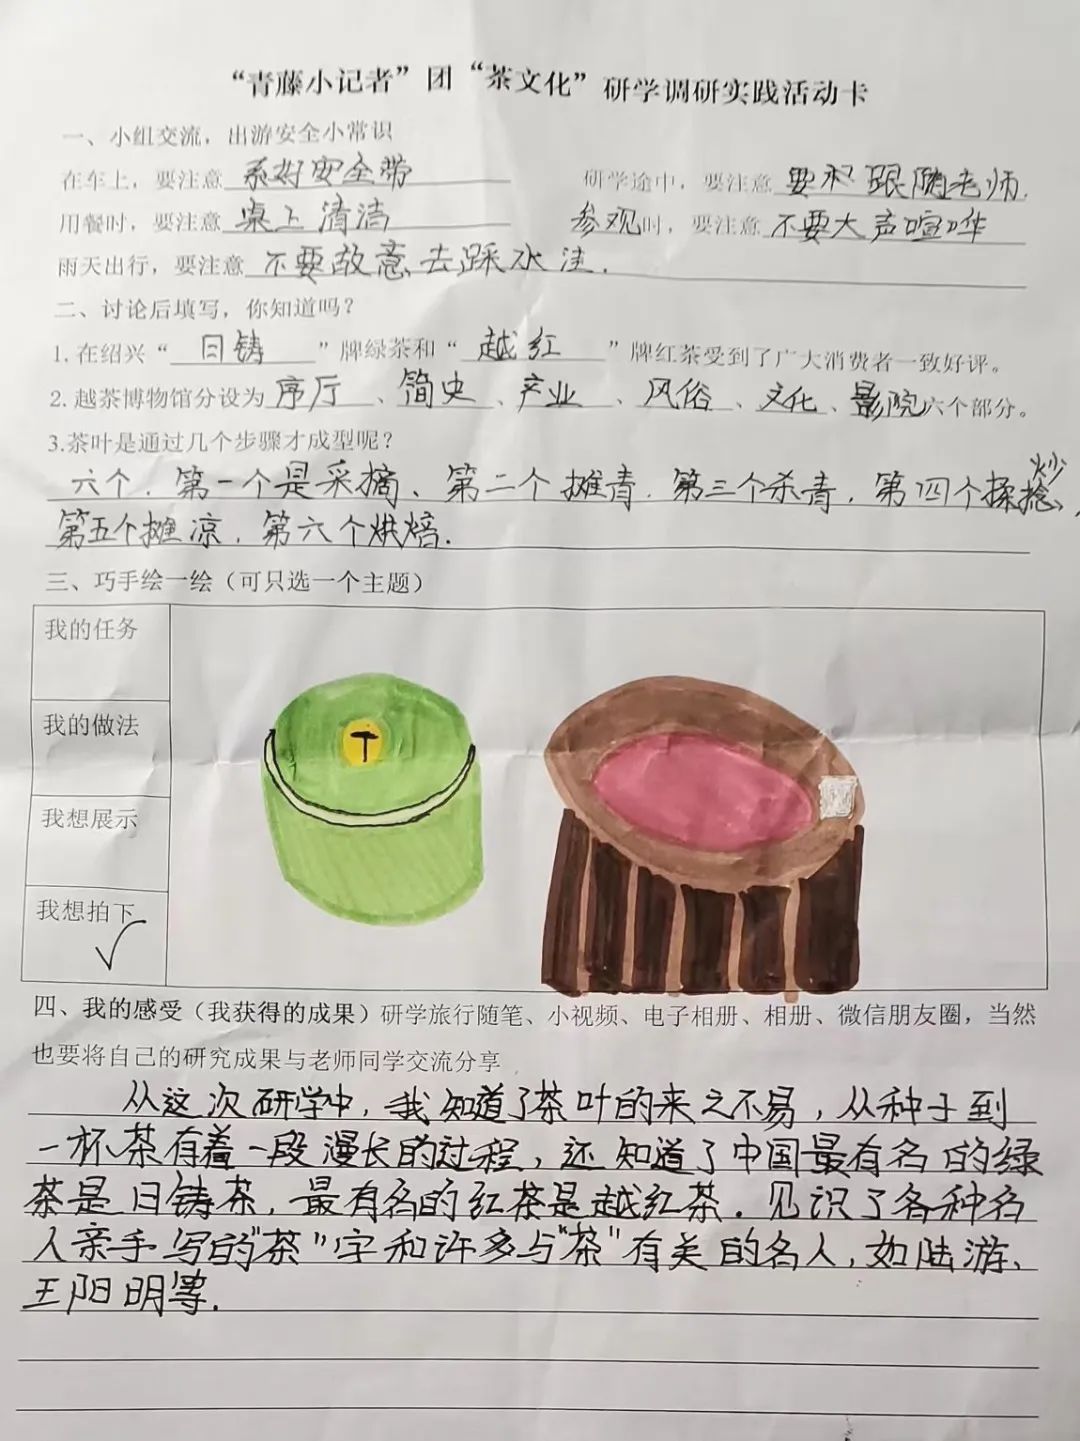 “青藤小记者”团“茶文化”研学调研实践活动卡
一、小组交流，出游安全小常识
在车上，要注意 系好安全带 研学途中，要注意 要积跟随老师.
用餐时，要注意 桌上清洁 参观时，要注意 不要大声喧哗
雨天出行，要注意 不要故意去踩水洼.
二、讨论后填写，你知道吗？
1.在绍兴“日铸”牌绿茶和“越红”牌红茶受到了广大消费者一致好评。
2.越茶博物馆分设为序厅、简史、产业、风俗、文化、影院六个部分。
3.茶叶是通过几个步骤才成型呢？
六个.第一个是采摘、第二个摊青.第三个杀青.第四个揉捻炒、
第五个摊凉.第六个烘焙.
三、巧手绘一绘（可只选一个主题）
我的任务
T
我的做法
我想展示
我想拍下
✓
四、我的感受（我获得的成果）研学旅行随笔、小视频、电子相册、相册、微信朋友圈，当然
也要将自己的研究成果与老师同学交流分享
从这次研学中，我知道了茶叶的来之不易，从种子到
一杯茶有着一段漫长的过程，还知道了中国最有名的绿
茶是日铸茶，最有名的红茶是越红茶.见识了各种名
人亲手写的“茶”字和许多与“茶”有关的名人，如陆游、
王阳明等.